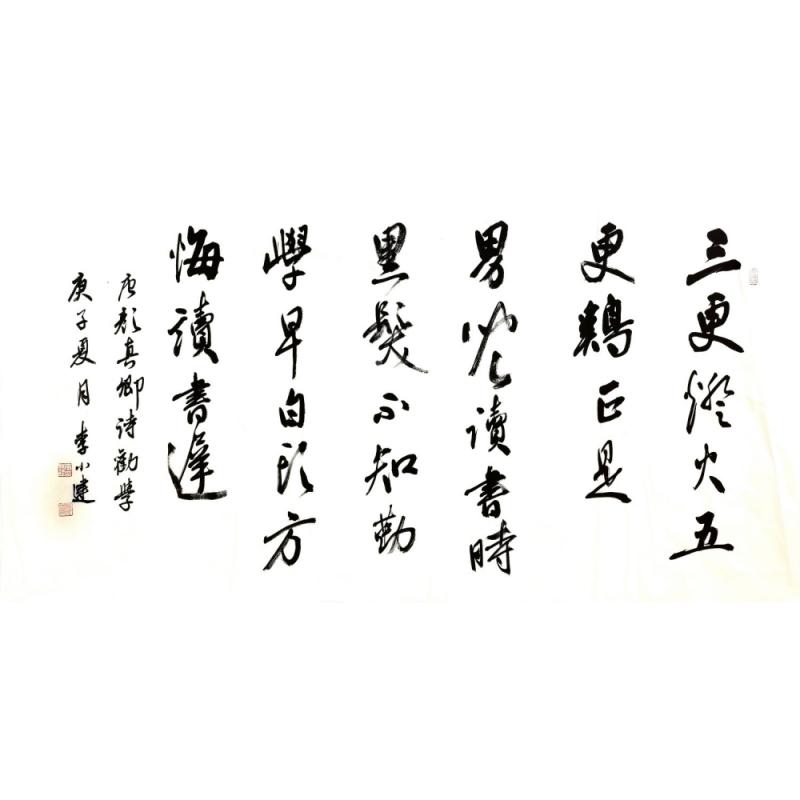 三更燈火五
更鷄正是
男兒讀書時
黑髮不知勤
學早白頭方
悔讀書遲
唐顏真卿詩勸學
庚子夏月李小建